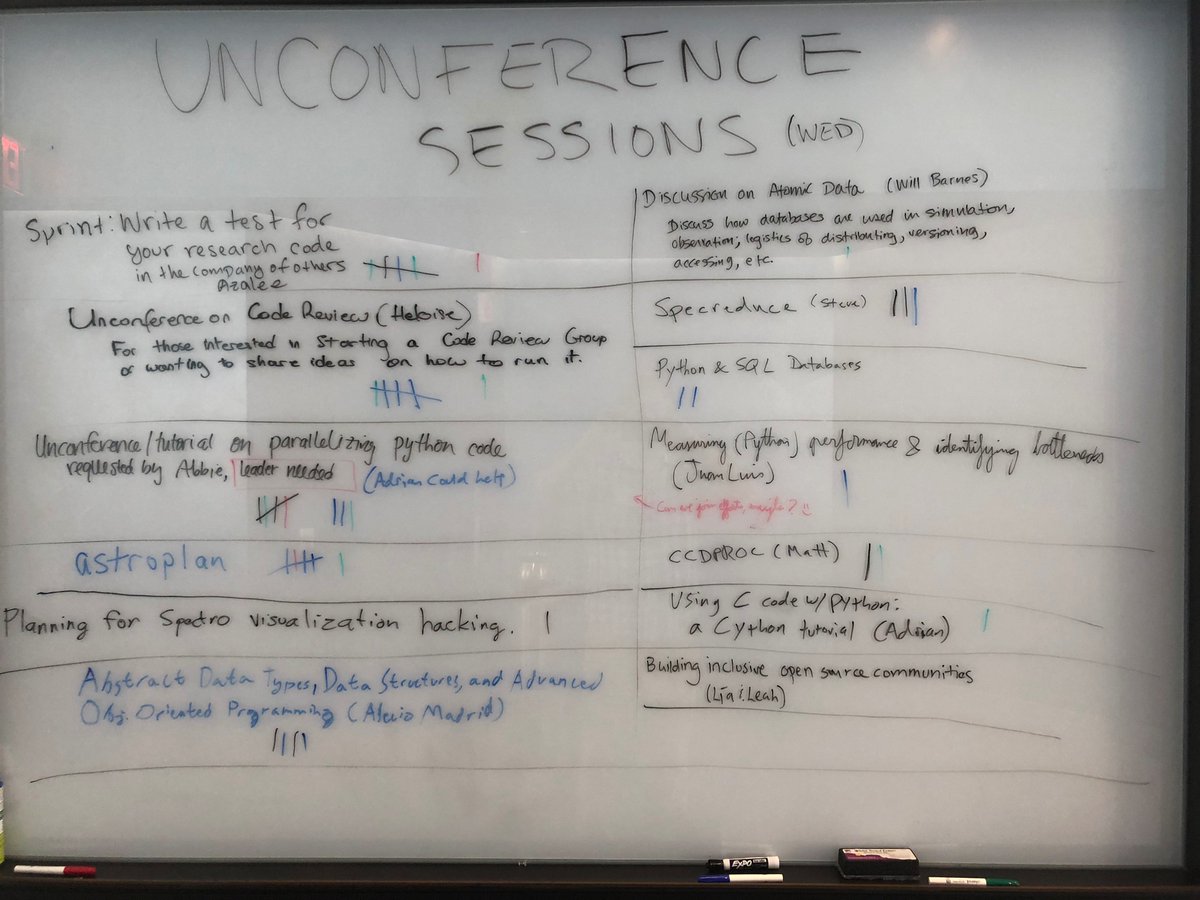 UNCONFERENCE
SESSIONS (WED)
Sprint: Write a test for
your research code
in the company of others
Azalee
Unconference on Code Review (Heloise)
For those interested in starting a Code Review Group
or wanting to share ideas on how to run it.
Unconference/tutorial on parallelizing python code
requested by Abbie, leader needed (Adrian could help)
astroplan
Planning for Spectro visualization hacking.
Abstract Data Types, Data Structures, and Advanced
Obj. Oriented Programming (Alexio Madrid)
Discussion on Atomic Data (Will Barnes)
Discuss how databases are used in simulation,
observation; logistics of distributing, versioning,
accessing, etc.
Specreduce (Steve)
Python & SQL Databases
Measuring (Python) performance & identifying bottlenecks
(Juan Luis)
Can we join efforts, maybe? :)
CCDPROC (Matt)
Using C code w/ python:
a Cython tutorial (Adrian)
Building inclusive open source communities
(Lia i. Leah)
EXPO